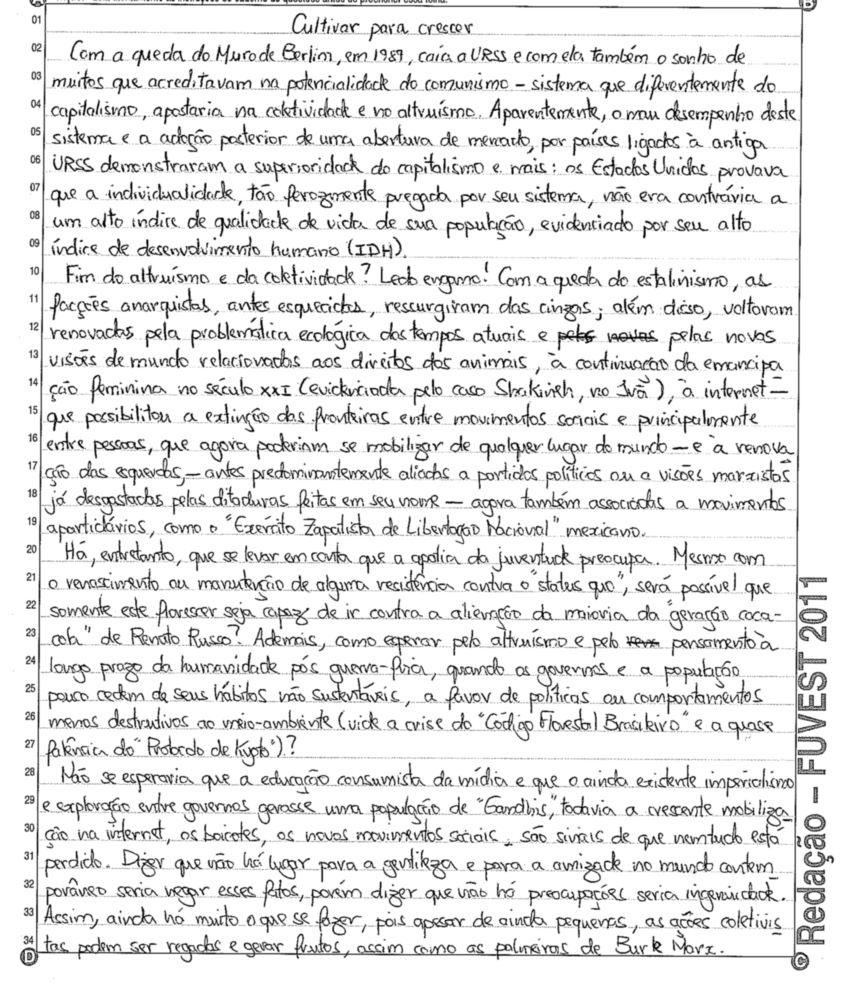 Cultivar para crescer
01
02 Com a queda do Muro de Berlim, em 1989, caía a URSS e com ela também o sonho de
03 muitos que acreditavam na potencialidade do comunismo – sistema que diferentemente do
04 capitalismo, apostaria na coletividade e no altruísmo. Aparentemente, o mau desempenho deste
05 sistema e a adoção posterior de uma abertura de mercado, por países ligados à antiga
06 URSS demonstraram a superioridade do capitalismo e mais: os Estados Unidos provava
07 que a individualidade, tão ferozmente pregada por seu sistema, não era contrária a
08 um alto índice de qualidade de vida de sua população, evidenciado por seu alto
09 índice de desenvolvimento humano (IDH).
10 Fim do altruísmo e da coletividade? Ledo engano! Com a queda do estalinismo, as
11 facções anarquistas, antes esquecidas, rescurgiram das cinzas; além disso, voltaram
12 renovadas pela problemática ecológica dos tempos atuais e pelas novas
13 visões de mundo relacionadas aos direitos dos animais, à continuacão da emancipa
14 ção feminina no século XXI (evidenciada pelo caso Shakineh, no Irã), à internet –
15 que possibilitou a extinção das fronteiras entre movimentos sociais e principalmente
16 entre pessoas, que agora poderiam se mobilizar de qualquer lugar do mundo – e à renova
17 ção das esquerdas, – antes predominantemente aliadas a partidos políticos ou a visões marxistas
18 já desgastadas pelas ditaduras feitas em seu nome – agora também associadas a movimentos
19 apartidários, como o "Exército Zapatista de Libertação Nacional" mexicano.
20 Há, entretanto, que se levar em conta que a apatia da juventude preocupa. Mesmo com
21 o renascimento ou manutenção de alguma resistência contra o "status quo", será possível que
22 somente este florescer seja capaz de ir contra a alienação da maioria da "geração coca-
23 cola" de Renato Russo? Ademais, como esperar pelo altruísmo e pelo pensamento à
24 longo prazo da humanidade pós guerra-fria, quando os governos e a população
25 pouco cedem de seus hábitos não sustentáveis, a favor de políticas ou comportamentos
26 menos destrutivos ao meio-ambiente (vide a crise do "Código Florestal Brasileiro" e a quase
27 falência do "Protocolo de Kyoto")?
28 Não se esperaria que a educação consumista da mídia e que o ainda existente imperialismo
29 e exploração entre governos gerasse uma população de "Gandhis", todavia a crescente mobiliza
30 ção na internet, os boicotes, os novos movimentos sociais, são sinais de que nem tudo está
31 perdido. Dizer que não há lugar para a gentileza e para a amizade no mundo contem
32 porâneo seria negar esses fatos, porém dizer que não há preocupações seria ingenuidade.
33 Assim, ainda há muito o que se fazer, pois apesar de ainda pequenas, as ações coletivis
34 tas podem ser regadas e gerar frutos, assim como as palmeiras de Burle Marx.
D
B
C
© Redação – FUVEST 2011